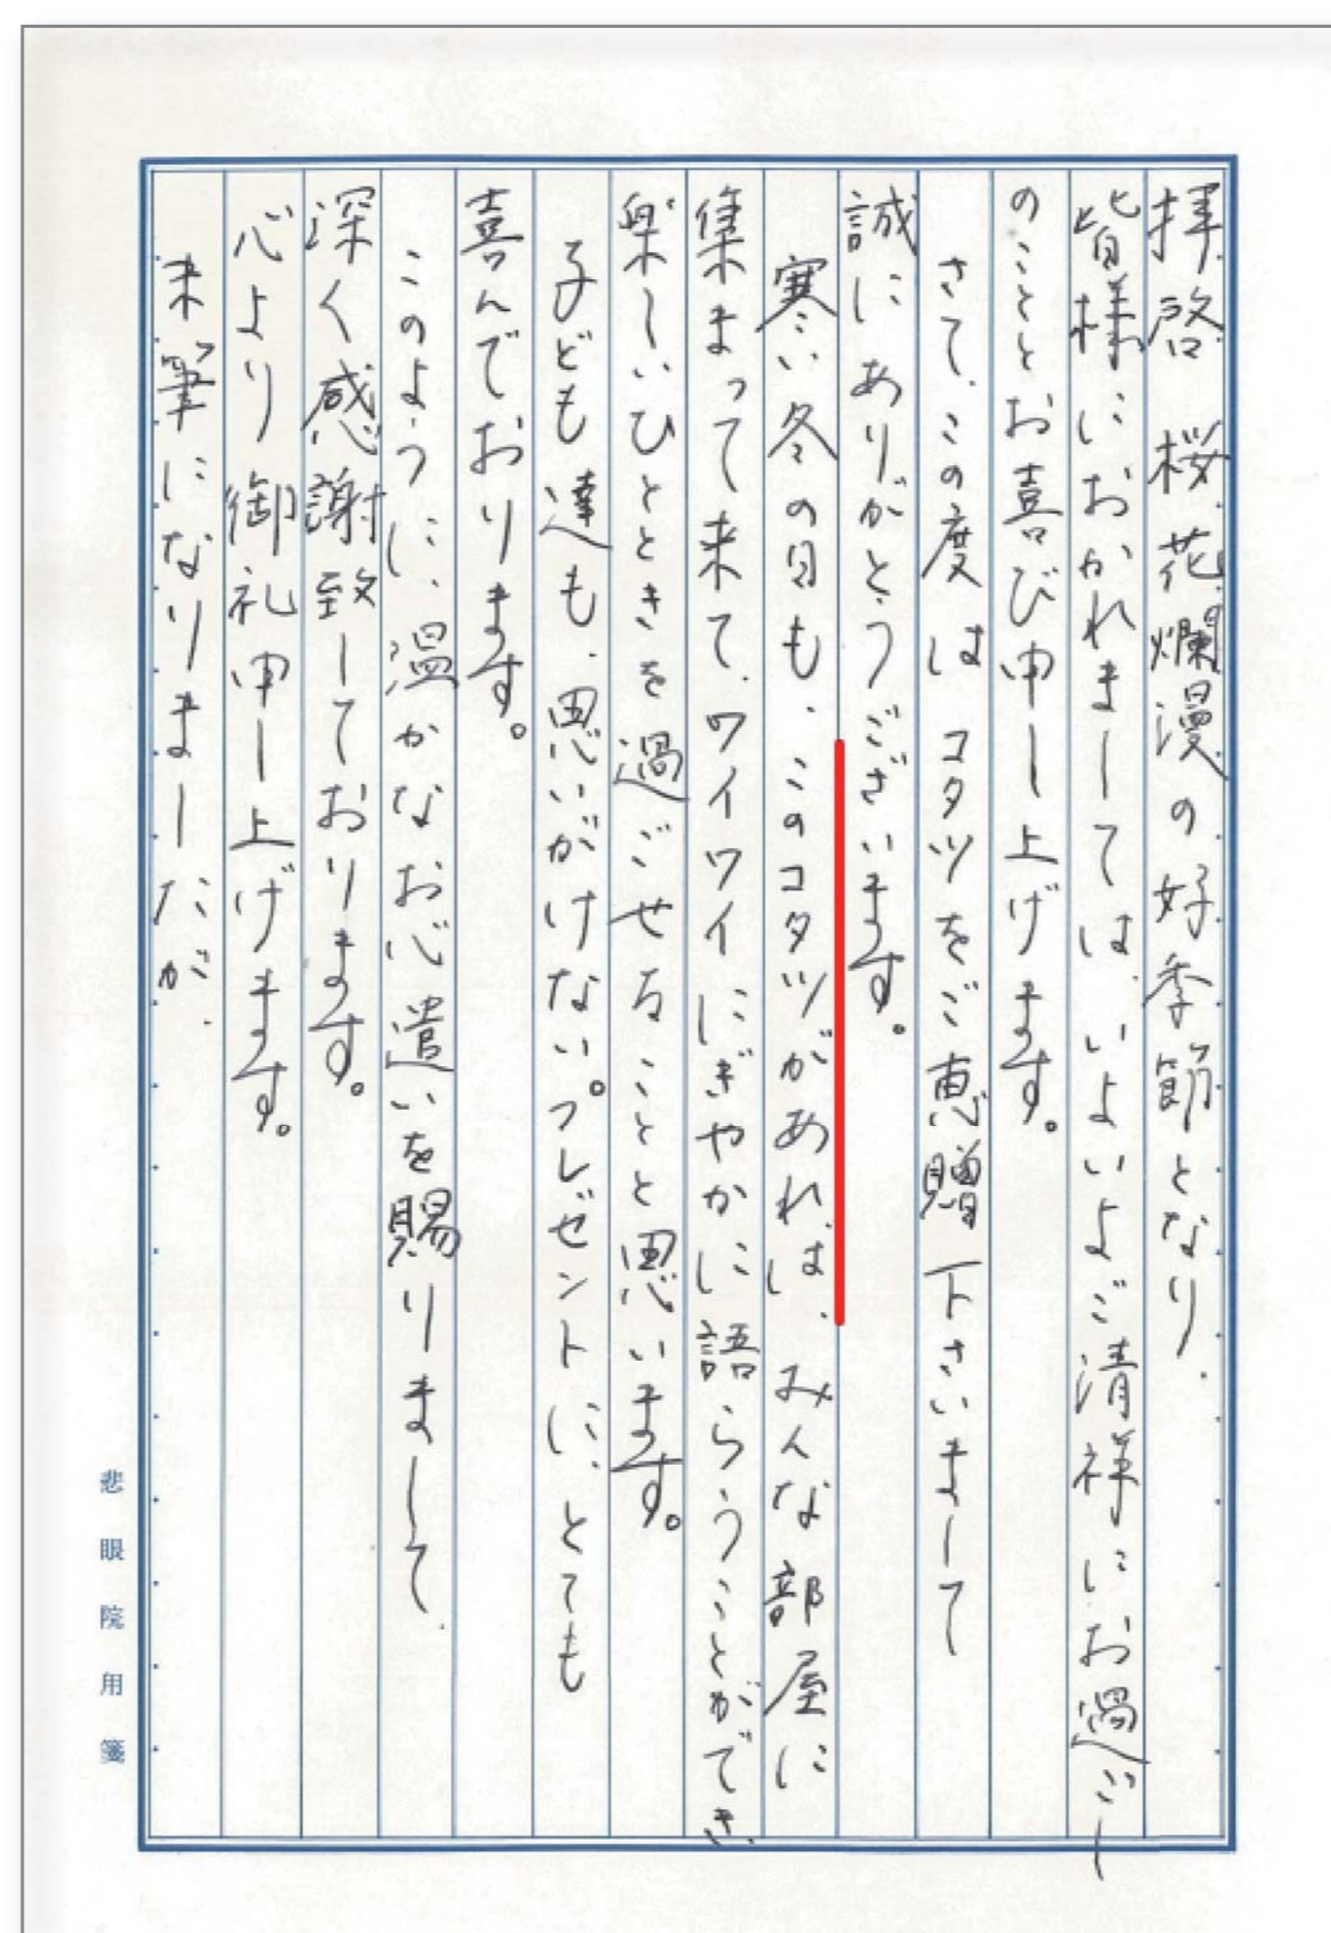 拝啓 桜花爛漫の好季節となり、
皆様におかれましては、いよいよご清祥にお過ごし
のこととお喜び申し上げます。
さて、この度は コタツをご恵贈下さいまして
誠にありがとうございます。
寒い冬の日も、このコタツがあれば、みんな部屋に
集まって来て、ワイワイにぎやかに語らうことができ、
楽しいひとときを過ごせることと思います。
子ども達も、思いがけないプレゼントに、とても
喜んでおります。
このように、温かなお心遣いを賜りまして、
深く感謝致しております。
心より御礼申し上げます。
末筆になりましたが、
悲眼院用箋